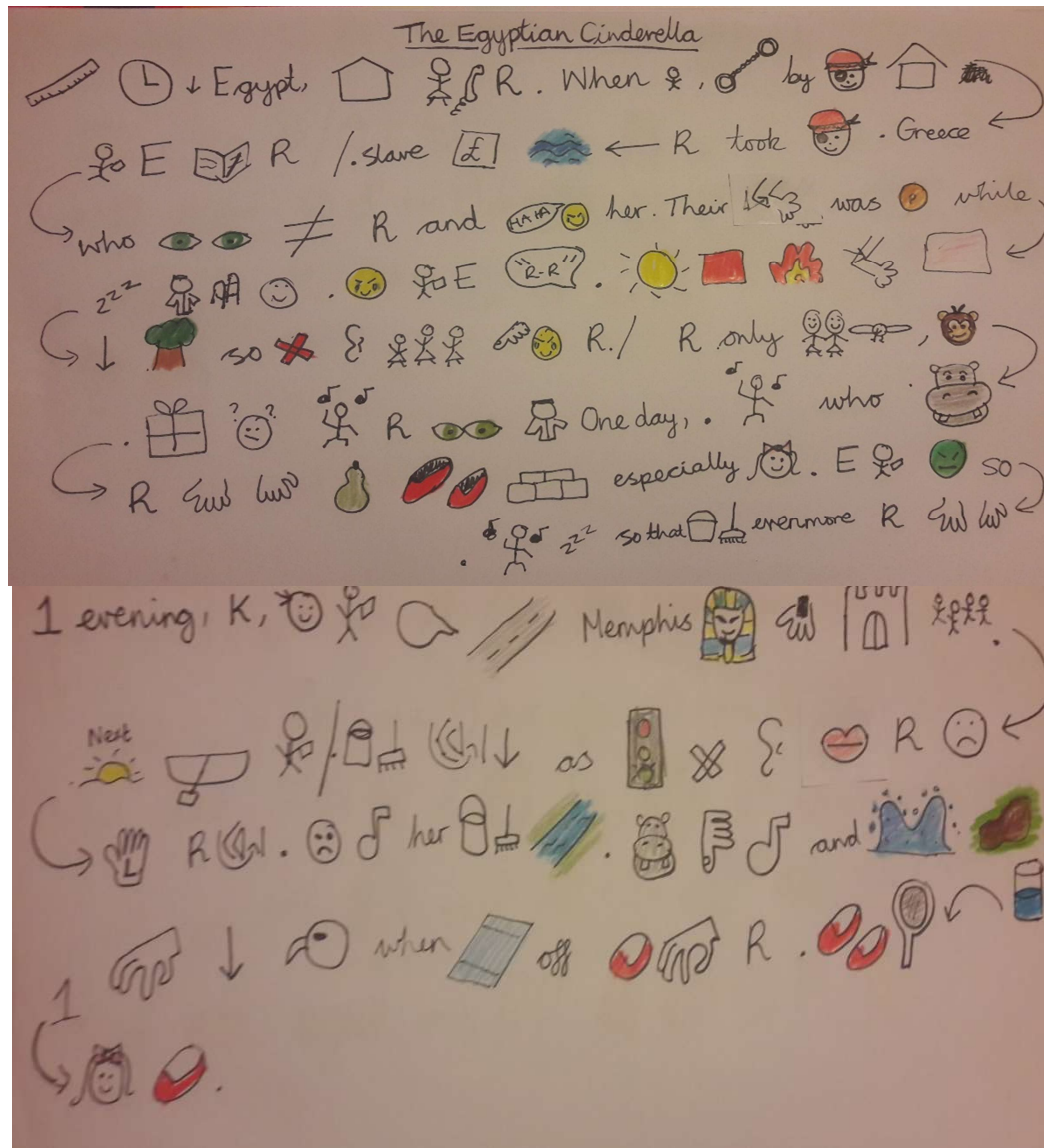 The Egyptian Cinderella
Egypt, R. When , by
E R /. slave £ R took . Greece
who ≠ R and HA HA her. Their was P while
zzz . E "R-R" .
so R./ R only ,
. ? ? R One day, . who
R especially . E so
. zzz so that evermore R
1 evening, K, Memphis .
Next / as R
L R . her . and
1 when off R .
.